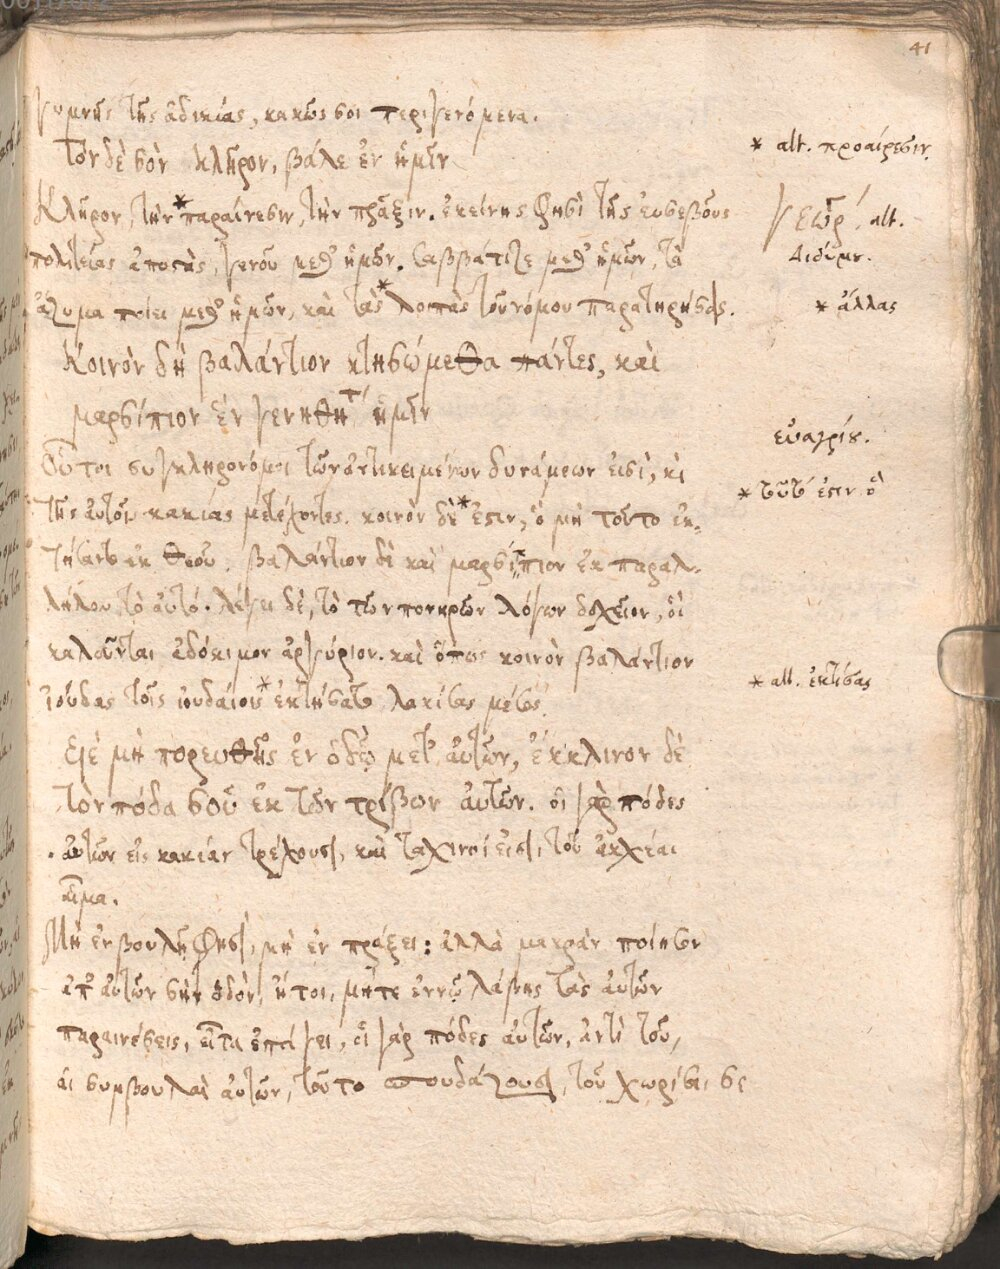 41
γυμνῆς τῆς ἀδικίας, κακῶς σοι περιγενόμενα.
Τὸν δὲ σὸν κλῆρον, βάλε ἐν ἡμῖν
* alt. προαίρεσιν.
Κλῆρον, τὴν* παραίνεσιν, τὴν πρᾶξιν. ἐκείνης φησὶ τῆς εὐσεβοῦς
Γεωρ´, alt. Διδύμου.
πολιτείας ἀποστὰς, γενοῦ μεθ' ἡμῶν. σαββάτιζε μεθ' ἡμῶν, τὰ
ἄζυμα ποίει μεθ' ἡμῶν, καὶ τὰς* λοιπὰς τοῦ νόμου παρατηρήσεις.
* ἄλλας
Κοινὸν δὴ βαλάντιον κτησώμεθα πάντες, καὶ
μαρσίπιον ἓν γενηθήτω ἡμῖν
εὐαγρίου.
Οὗτοι συγκληρονόμοι τῶν ἀντικειμένων δυνάμεων εἰσὶ, κὶ
* τοῦτ' ἐστιν ὁ
τῆς αὐτῶν κακίας μετέχοντες. κοινὸν δὲ* ἐστιν, ὁ μὴ τοῦτο ἐκ-
τήσατο ἐκ θεοῦ. βαλάντιον δὲ καὶ μαρσίπιον ἐκ παραλ-
λήλου, τὸ αὐτό. λέγει δὲ, τὸ τῶν πονηρῶν λόγων δοχεῖον, οἳ
καλοῦνται ἀδόκιμον ἀργύριον. καὶ οὕτως κοινὸν βαλάντιον
ἰούδας τοῖς ἰουδαίοις* ἐκτήσατο
* alt. ἐκτίσας
Εἰὲ μὴ πορευθῇς ἐν ὁδῷ μετ' αὐτῶν, ἔκκλινον δὲ
τὸν πόδα σοῦ ἐκ τῶν τρίβων αὐτῶν. οἱ γὰρ πόδες
αὐτῶν εἰς κακίαν τρέχουσι, καὶ ταχινοί εἰσι, τοῦ ἐκχέαι
αἷμα.
Μὴ ἐν βουλῇ φησὶ, μὴ ἐν πράξει: ἀλλὰ μακρὰν ποίησον
ἀπ' αὐτῶν σὴν ὁδὸν, ἤτοι, μήτε ἐν νῷ λάβῃς τὰς αὐτῶν
παραινέσεις, εἶτα ἐπάγει, οἱ γὰρ πόδες αὐτῶν, ἀντὶ τοῦ,
αἱ συμβουλαὶ αὐτῶν, τοῦτο σπουδάζουσι, τοῦ χωρίσαι σε